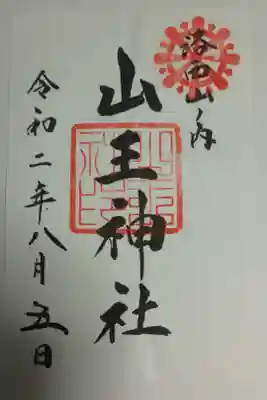 洛西山ノ内
山王神社
令和二年八月五日